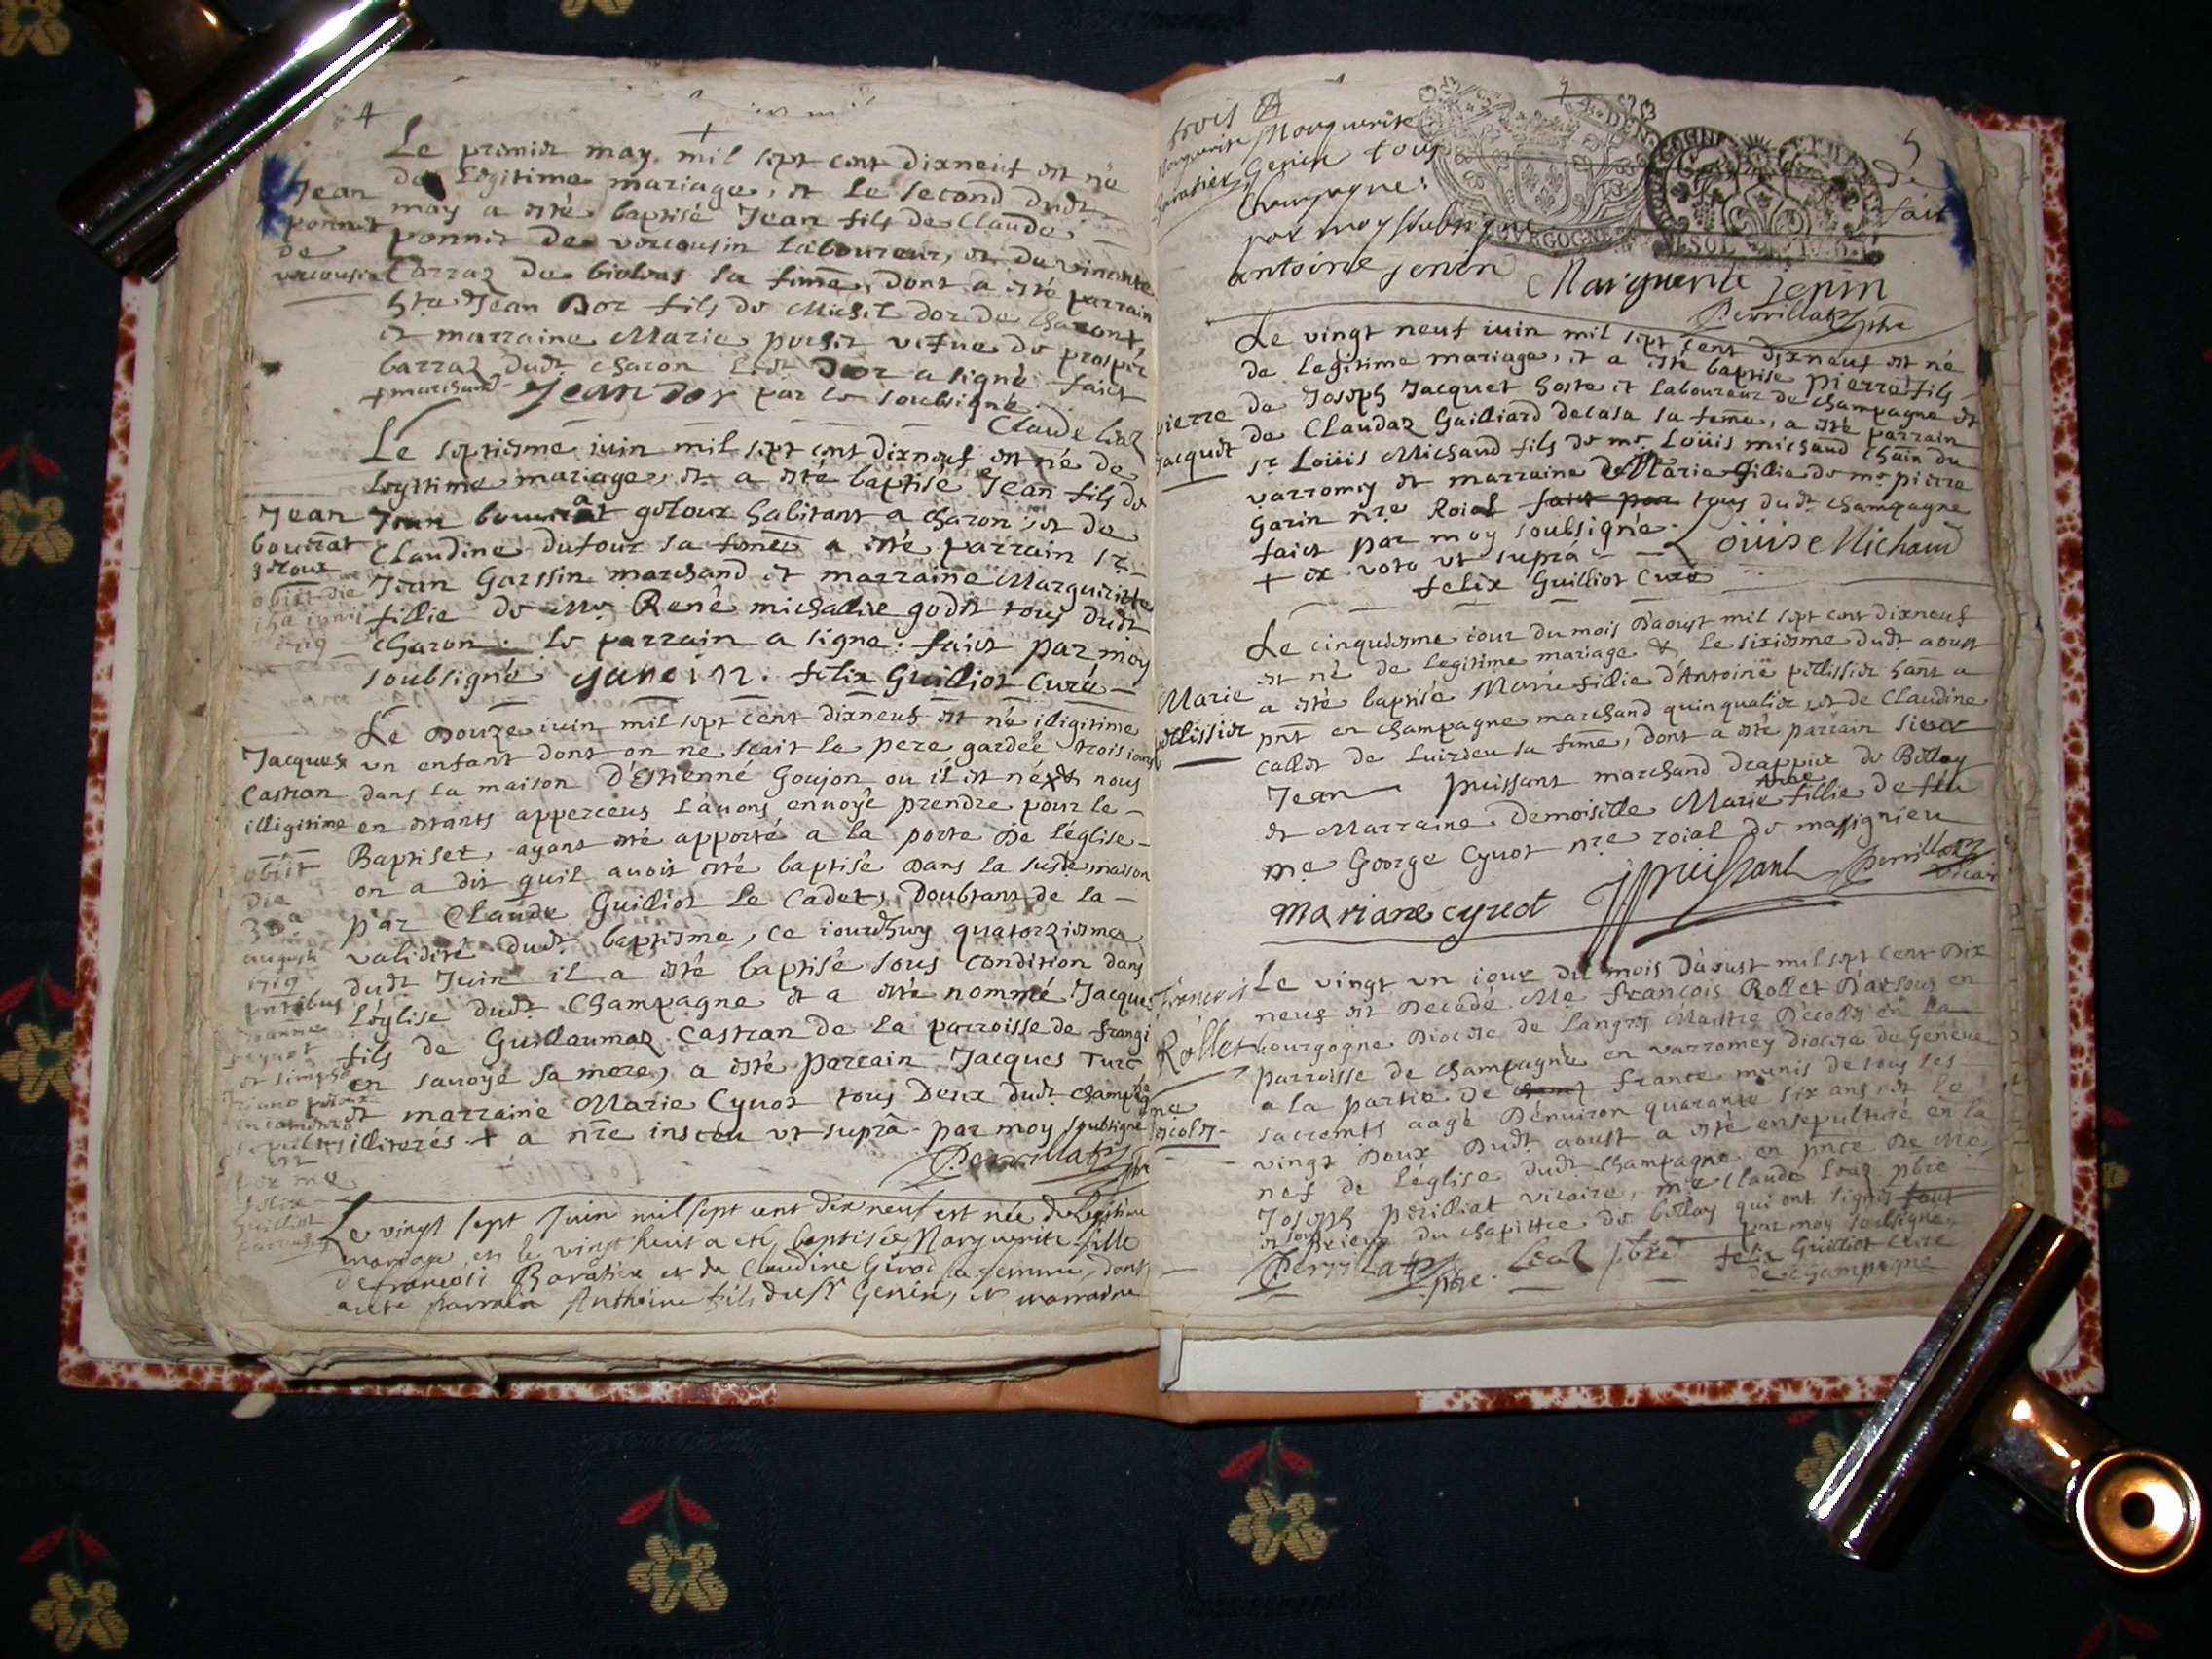 4
Le premier may mil sept cent dixneuf est né
de legitime mariage, et le second dudt
may a esté baptisé Jean fils de Claude
ponnet de vercousin laboureur, et de vincente
Carraz de biolvas sa feme, dont a esté parrain
hte Jean Dor fils de Michel dor de charont,
et marraine Marie vefue de prosper
barraz dudt charon ledt Dor a signé faict
+ marchand Jean Dor par le soubsigné
Claude
Jean
ponnet
de
vercousin
Le septiesme iuin mil sept cent dixneuf est né de
legitime mariage, et a esté baptisé Jean fils de
Jean bouirat geloux habitant a charon, et de
Claudine dufour sa feme a esté parrain sr
Jean Garssin marchand et marraine Marguiritte
fillie de Mr René michallie godet tous dudt
charon. le parrain a signé. faict par moy
soubsigné felix Guilliot Curé
Jean
bouirat
geloux
obiit die
iunij
1719
Le Douze iuin mil sept cent dixneuf est né illigitime
un enfant dont on ne scait le pere gardeé trois iours
dans la maison D'Estienné Goujon ou il est né et nous
en estants apperceus l'auons enuoyé prendre pour le
Baptiser, ayant esté apporté a la porte De l'église
on a dit quil auoit esté baptisé Dans la susde maison
par Claude Guilliot le Cadet, Doubtant de la
validité dudt baptisme, ce iourdhuy quatorziesme
dudt Juin il a esté baptisé sous condition dans
l'église dudt Champagne et a esté nommé Jacques
fils de Guillaumaz Castran de la parroisse de frangi
en sauoye sa mere, a esté parrain Jacques Turc
et marraine Marie Cyuot tous Deux dudt Champne
illiterés + a nre insceu ut supra par moy soubsigné
Perrillat ptre
Jacques
Castran
illigitime
obiit
Die
30a
augusti
1719
pntibus
felix
Guilliot
Le vingt sept Juin mil sept cent dix neuf est née de legitime
mariage, et le vingt huit a eté baptisée Marguerite fille
de francois Baratier et de Claudine Girod sa femme, dont
a eté parrain Anthoine fils du sr Genin, et marraine
5
trois
Marguerite Marguerite
Baratier Genin tous de
Champagne: fait
par moy soubsigné
antoine jenin Marguerite jenin
Perrillat ptre
BOURGOGNE
Le vingt neuf iuin mil sept cent dixneuf est né
de legitime mariage, et a esté baptisé pierre fils
de Joseph Jacquet hoste et laboureur de Champagne et
de Claudaz Gailliard decasa sa feme, a esté parrain
sr Louis Michaud fils de mr Louis michaud chain du
varromey et marraine Marie fillie de mr pierre
Garin nre Roial faict par tous dudt champagne
faict par moy soubsigné
+ ex voto ut supra Louis Michaud
felix Guilliot Curé
pierre
jacquet
Le cinquiesme iour du mois Daoust mil sept cent dixneuf
est né de legitime mariage & le sixiesme dudt aoust
a esté baptisé Marie fillie d'Antoine pellissier hant a
pnt en champagne marchand quinqualier et de Claudine
Callet de Luirieu sa feme, dont a esté parrain sieur
Jean puissant marchand drappier de Belley
et Marraine Demoiselle Marie Anne fillie de feu
me George Cyuot nre roial de massignieu
mariane cyuot Jpuissant Perrillat vicaire
Marie
pellissier
Le vingt un iour du mois Daoust mil sept cent Dix
neuf est Decedé Me francois Rollet D'arsous en
bourgogne Diocese de Langres Maistre D'ecolles en la
parroisse de champagne en varromey diocese de Geneve
a la partie de france munis de tous ses
sacremts aagé D'enuiron quarante six ans et le
vingt Deux Dudt aoust a esté ensepulturé en la
nef de l'église dudt Champagne en pnce De Me
Joseph perilliat vicaire, mre Claude Leaz pbre
et soubprieur du chapittre de belley qui ont signés faict
par moy soubsigné
Perrillat ptre. Leaz pbre felix Guilliot Curé
de champagne
francois
Rollet
me
ecoles